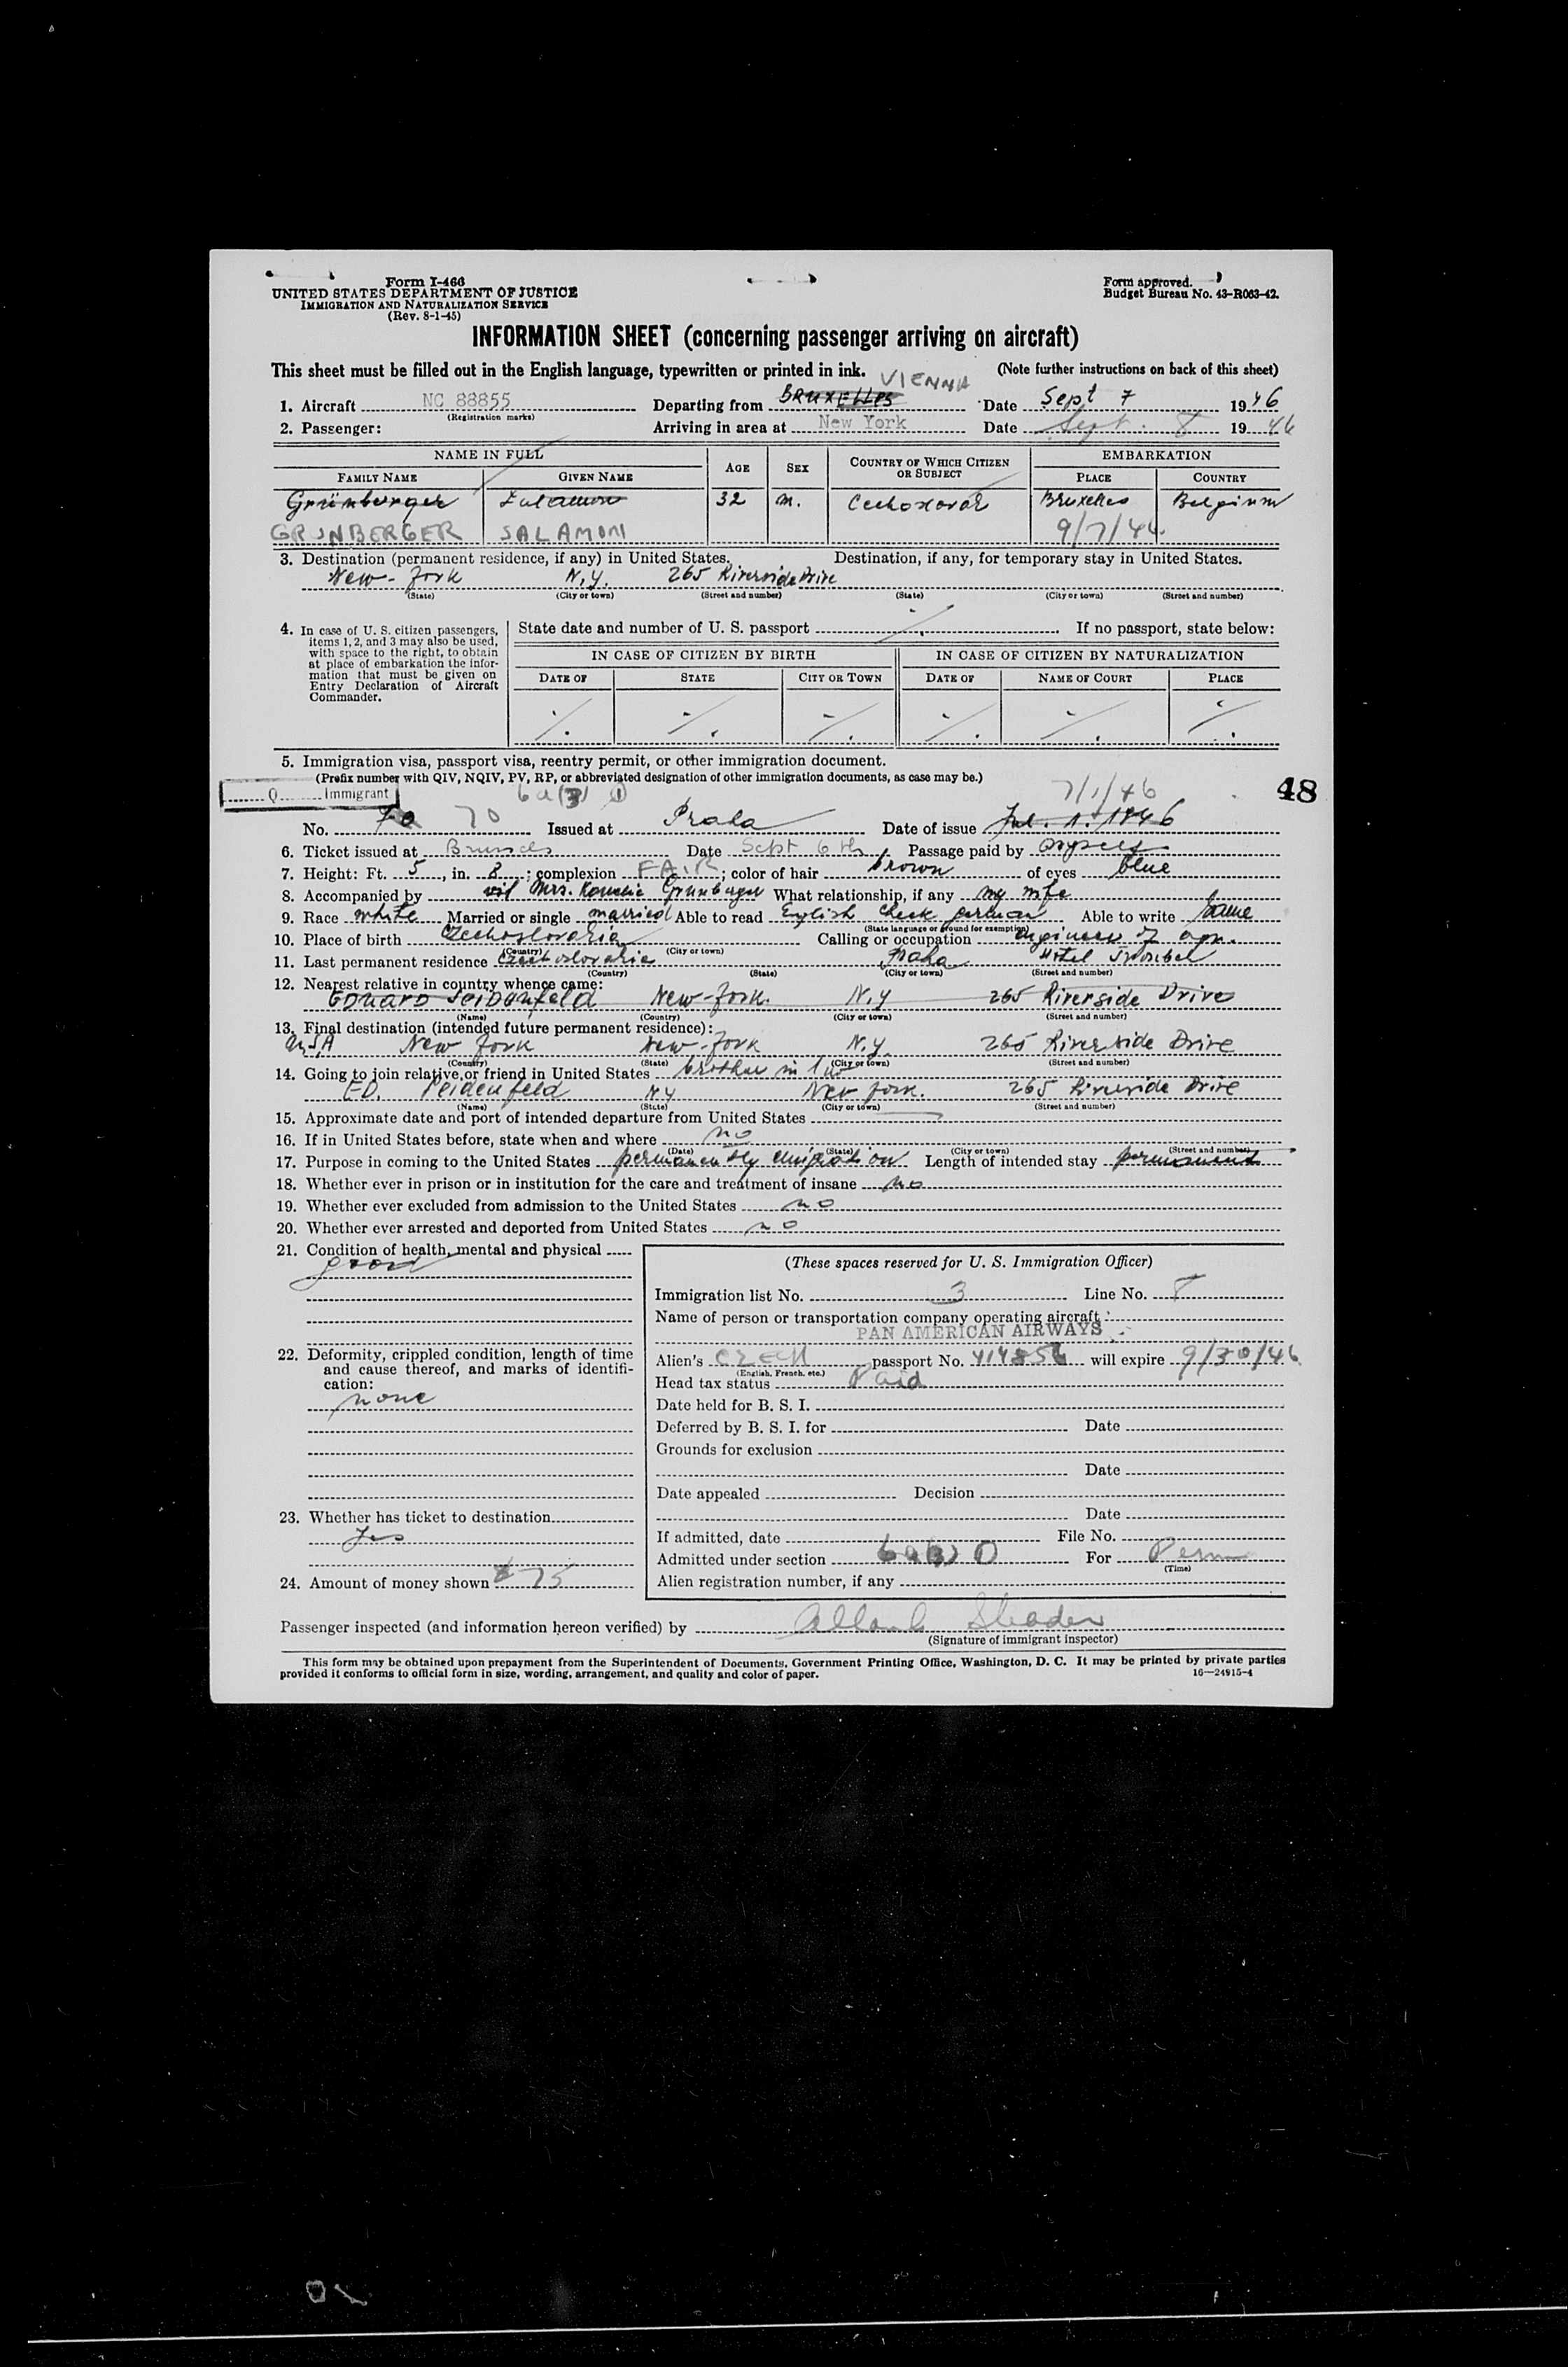 Form I-466
UNITED STATES DEPARTMENT OF JUSTICE
IMMIGRATION AND NATURALIZATION SERVICE
(Rev. 8-1-45)
Form approved.
Budget Bureau No. 43-R063-42.
INFORMATION SHEET (concerning passenger arriving on aircraft)
This sheet must be filled out in the English language, typewritten or printed in ink. (Note further instructions on back of this sheet)
VIENNA
1. Aircraft NC 88855 Departing from BRUXELLES Date Sept 7 1946
(Registration marks)
2. Passenger: Arriving in area at New York Date Sept. 8 1946
NAME IN FULL AGE SEX COUNTRY OF WHICH CITIZEN OR SUBJECT EMBARKATION
FAMILY NAME GIVEN NAME PLACE COUNTRY
Grünberger 32 m. Bruxelles Belgium
GRUNBERGER SALAMON 9/7/46
3. Destination (permanent residence, if any) in United States. Destination, if any, for temporary stay in United States.
New-York N.Y. 265 Riverside Drive
(State) (City or town) (Street and number) (State) (City or town) (Street and number)
4. In case of U. S. citizen passengers, items 1, 2, and 3 may also be used, with space to the right, to obtain at place of embarkation the information that must be given on Entry Declaration of Aircraft Commander.
State date and number of U. S. passport If no passport, state below:
IN CASE OF CITIZEN BY BIRTH IN CASE OF CITIZEN BY NATURALIZATION
DATE OF STATE CITY OR TOWN DATE OF NAME OF COURT PLACE
5. Immigration visa, passport visa, reentry permit, or other immigration document.
(Prefix number with QIV, NQIV, PV, RP, or abbreviated designation of other immigration documents, as case may be.)
Q Immigrant 6a(3) 1 7/1/46 48
No. 70 70 Issued at Praha Date of issue Jul. 1. 1946
6. Ticket issued at Brussels Date Sept 6th Passage paid by myself
7. Height: Ft. 5, in. 8; complexion FAIR; color of hair brown of eyes blue
8. Accompanied by Mrs. Grünberger What relationship, if any my wife
9. Race white Married or single married Able to read English Check german Able to write Same
(State language or ground for exemption)
10. Place of birth Czechoslovakia Calling or occupation engineer of agr.
(Country) (City or town)
11. Last permanent residence Czechoslovakia Praha Hotel
(Country) (State) (City or town) (Street and number)
12. Nearest relative in country whence came:
Eduard Seidenfeld New-York. N.Y 265 Riverside Drive
(Name) (Country) (City or town) (Street and number)
13. Final destination (intended future permanent residence):
USA New York New-York N.Y. 265 Riverside Drive
(Country) (State) (City or town) (Street and number)
14. Going to join relative or friend in United States brother in law
ED. Seidenfeld NY New York. 265 Riverside Drive
(Name) (State) (City or town) (Street and number)
15. Approximate date and port of intended departure from United States
16. If in United States before, state when and where no
(Date) (State) (City or town) (Street and number)
17. Purpose in coming to the United States permanently emigration Length of intended stay permanent
18. Whether ever in prison or in institution for the care and treatment of insane no
19. Whether ever excluded from admission to the United States no
20. Whether ever arrested and deported from United States no
21. Condition of health, mental and physical
good
22. Deformity, crippled condition, length of time and cause thereof, and marks of identification:
none
23. Whether has ticket to destination
Yes
24. Amount of money shown $75
(These spaces reserved for U. S. Immigration Officer)
Immigration list No. 3 Line No. 8
Name of person or transportation company operating aircraft:
PAN AMERICAN AIRWAYS
Alien's CZECH passport No. 414856 will expire 9/30/46
(English, French, etc.)
Head tax status Paid
Date held for B. S. I.
Deferred by B. S. I. for Date
Grounds for exclusion
Date
Date appealed Decision
Date
If admitted, date File No.
Admitted under section 6a(3) 1 For Perm
(Time)
Alien registration number, if any
Passenger inspected (and information hereon verified) by
(Signature of immigrant inspector)
This form may be obtained upon prepayment from the Superintendent of Documents, Government Printing Office, Washington, D. C. It may be printed by private parties
provided it conforms to official form in size, wording, arrangement, and quality and color of paper. 16—24915-4